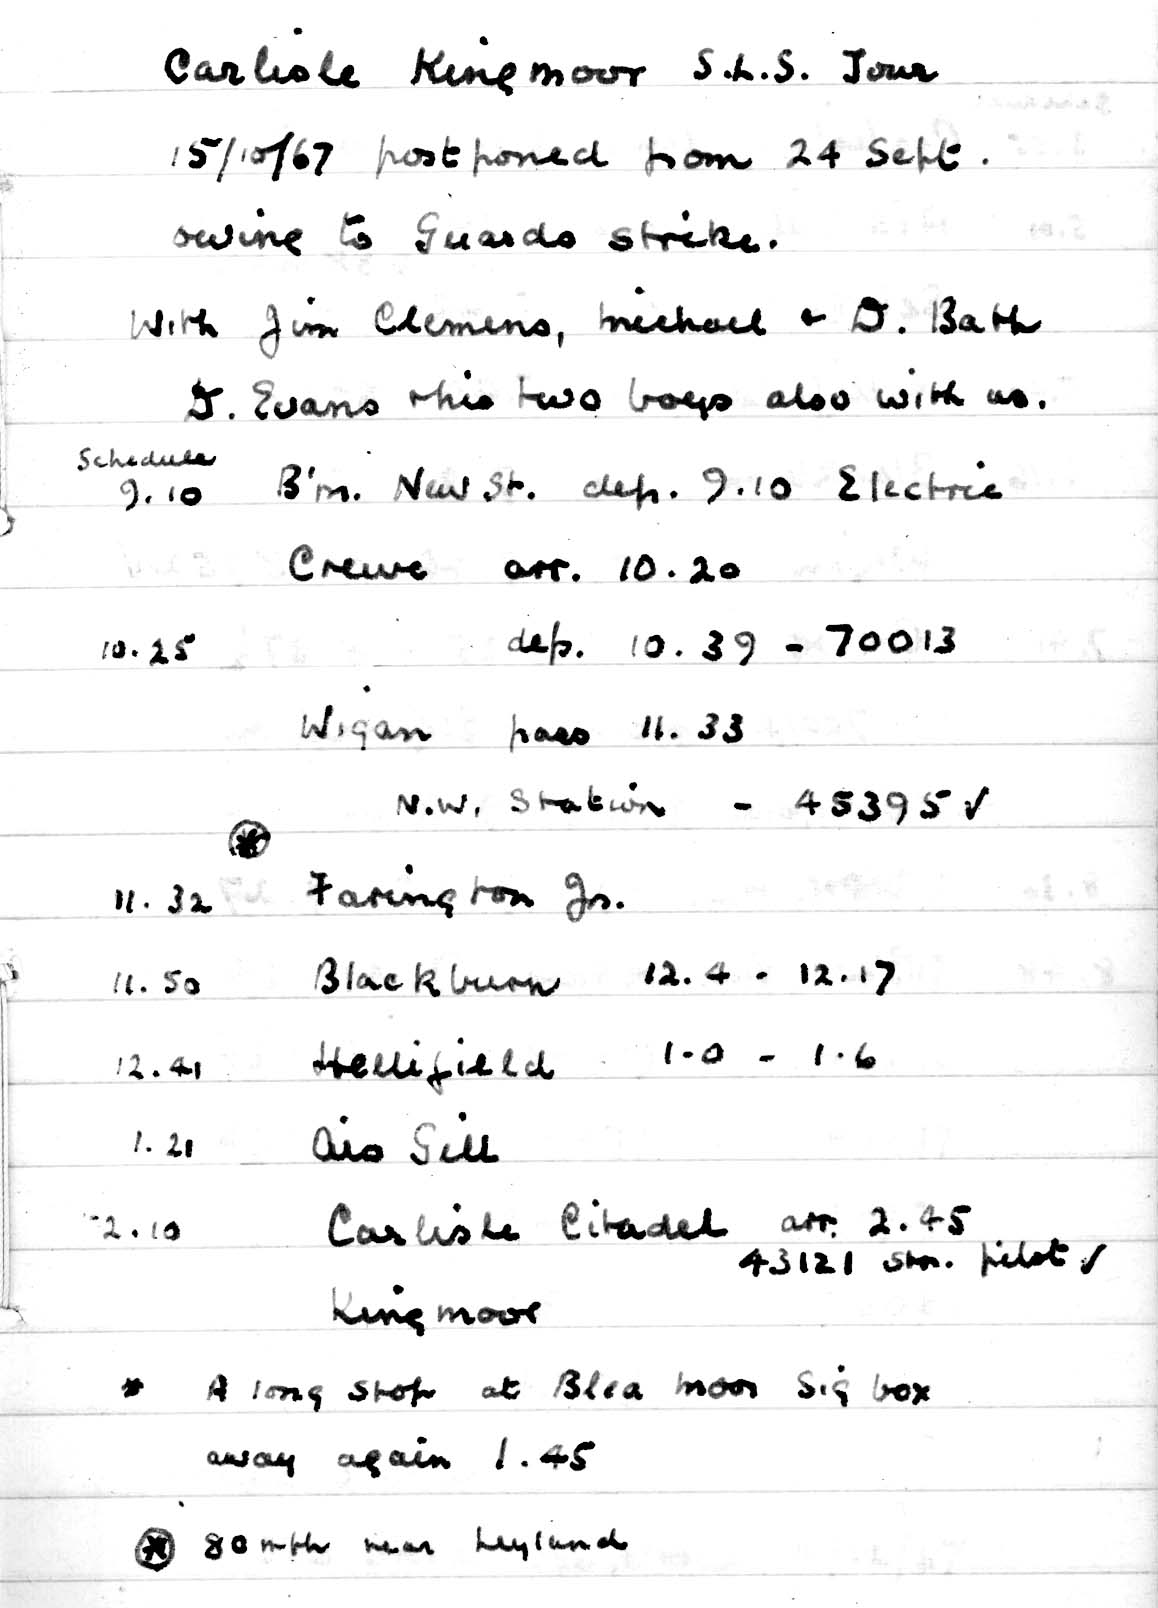 Carlisle Kingmoor S.L.S. Tour
15/10/67 postponed from 24 Sept.
owing to Guards strike.
With Jim Clemens, Michael & D. Bath
D. Evans & his two boys also with us.
Schedule
9.10 B'm. New St. dep. 9.10 Electric
Crewe arr. 10.20
10.25 dep. 10.39 - 70013
Wigan pass 11.33
N.W. Station - 45395 ✓
⊛
11.32 Farington Jn.
11.50 Blackburn 12.4 - 12.17
12.41 Hellifield 1.0 - 1.6
1.21 Ais Gill
2.10 Carlisle Citadel arr. 2.45
43121 stn. pilot ✓
Kingmoor
* A long stop at Blea moor Sig box
away again 1.45
⊛ 80 mph near Leyland